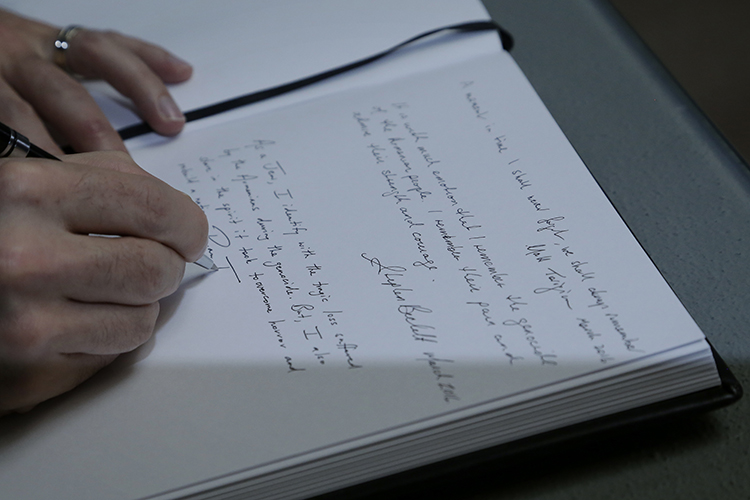 A moment in time I shall never forget, we shall always remember
Matt March 2016
It is with much emotion that I remember the genocide
of the Armenian people. I remember their pain and
admire their strength and courage.
Stephen March 2016
As a Jew, I identify with the tragic loss suffered
by the Armenians during the genocide. But, I also
the spirit it took to overcome horror and
rebuild a